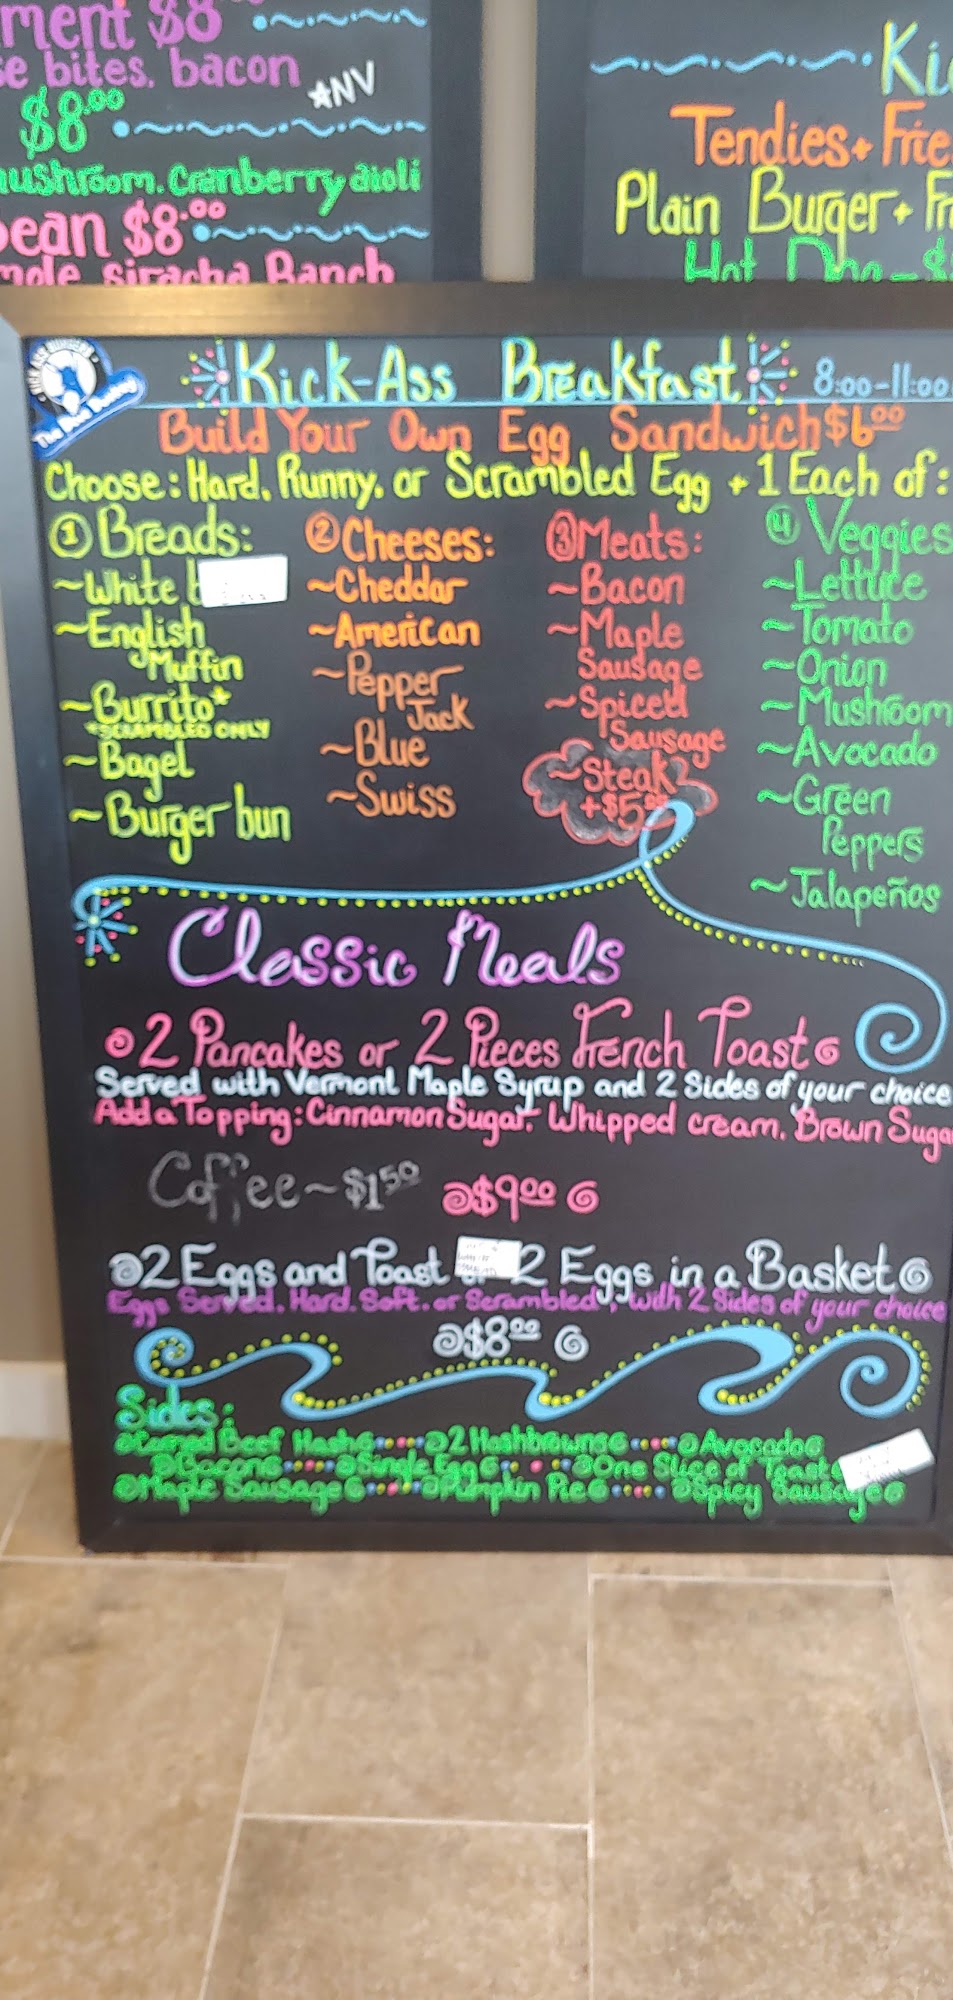 ment $8
se bites. bacon
*NV
$8.00
mushroom. Cranberry aioli
bean $8.00
siracha Ranch
Tendies + Frie
Plain Burger + Fr
Hot Dog - $
Kick-Ass Breakfast 8:00-11:00
Build Your Own Egg Sandwich $6.00
Choose: Hard, Runny, or Scrambled Egg + 1 Each of:
① Breads:
~White
~English Muffin
~Burrito*
*SCRAMBLED ONLY
~Bagel
~Burger bun
② Cheeses:
~Cheddar
~American
~Pepper Jack
~Blue
~Swiss
③ Meats:
~Bacon
~Maple Sausage
~Spiced Sausage
~Steak
+$5
④ Veggies
~Lettuce
~Tomato
~Onion
~Mushroom
~Avocado
~Green Peppers
~Jalapeños
Classic Meals
2 Pancakes or 2 Pieces French Toast
Served with Vermont Maple Syrup and 2 Sides of your choice
Add a Topping: Cinnamon Sugar, Whipped cream, Brown Suga
Coffee ~ $1.50 $9.00
2 Eggs and Toast 2 Eggs in a Basket
Eggs Served, Hard, Soft, or Scrambled, with 2 Sides of your choice
$8.00
Sides:
Corned Beef Hash 2 Hashbrowns Avocado
Bacon Single Egg One Slice of Toast
Maple Sausage Pumpkin Pie Spicy Sausage